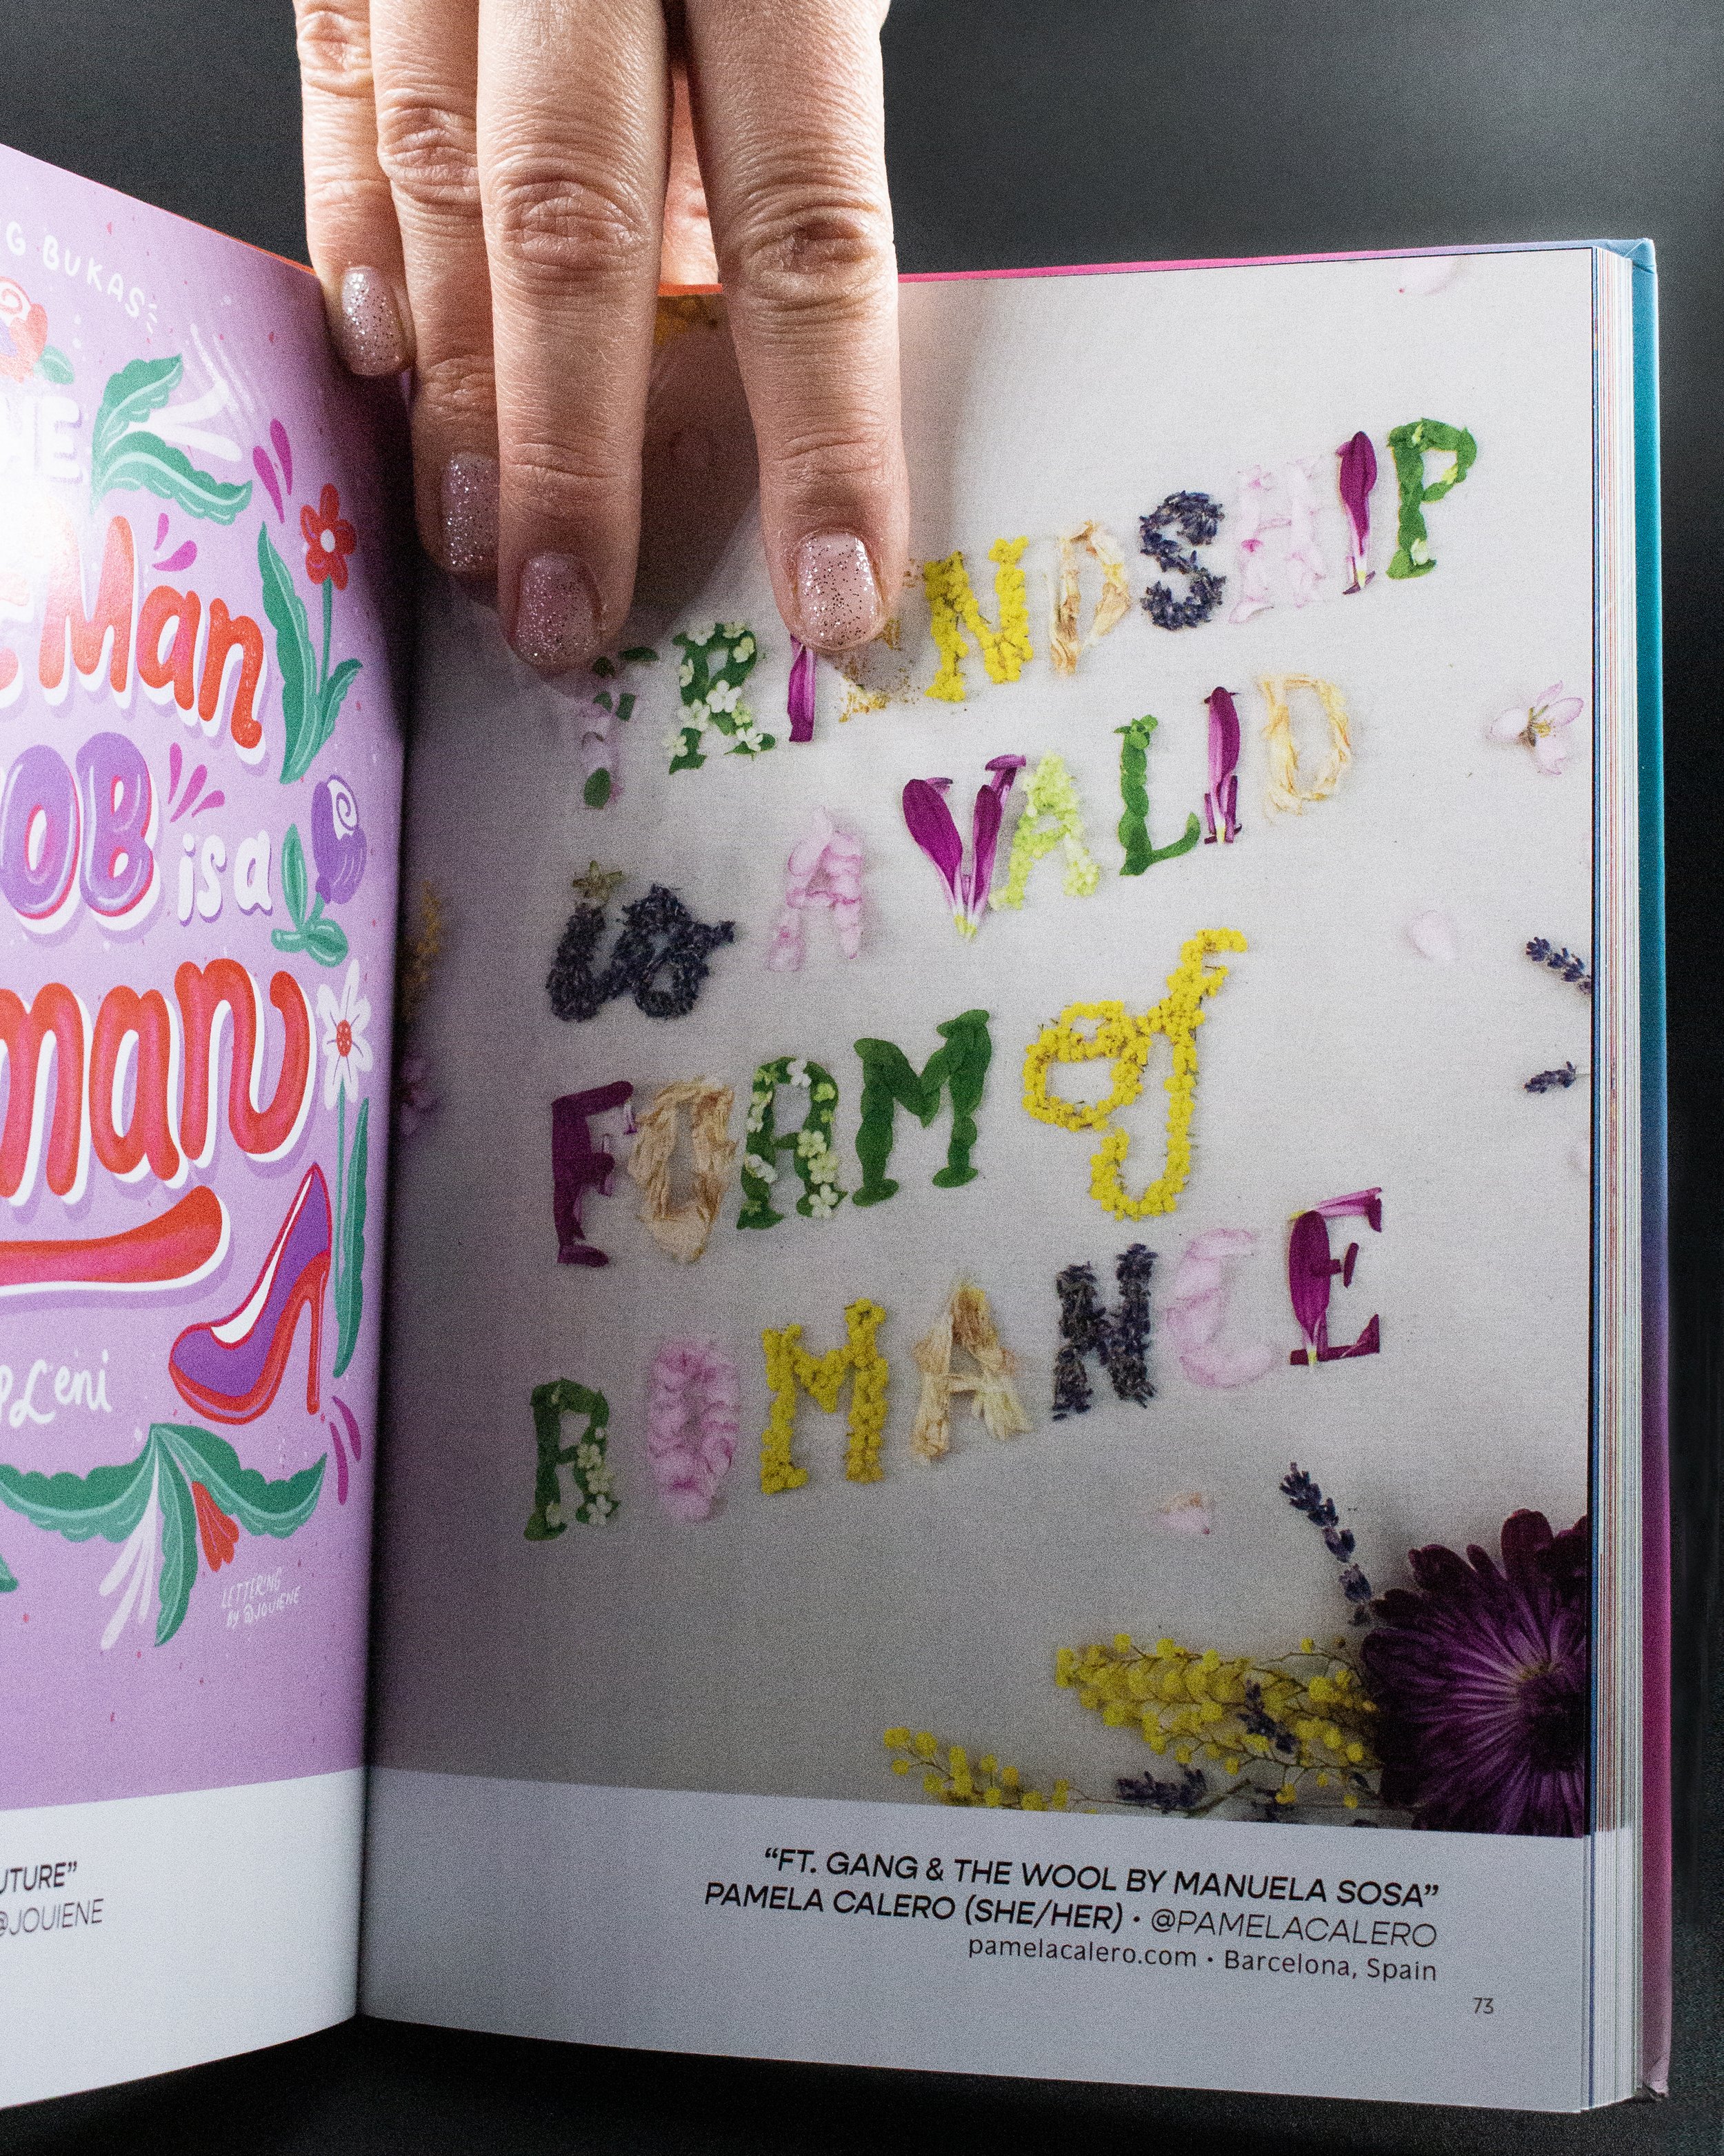 G BUKAS
HE
Man
OB is a
man
Leni
LETTERING
BY @JOUIENE
UTURE”
@JOUIENE
FRIENDSHIP
is A VALID
FORM of
ROMANCE
“FT. GANG & THE WOOL BY MANUELA SOSA”
PAMELA CALERO (SHE/HER) • @PAMELACALERO
pamelacalero.com • Barcelona, Spain
73